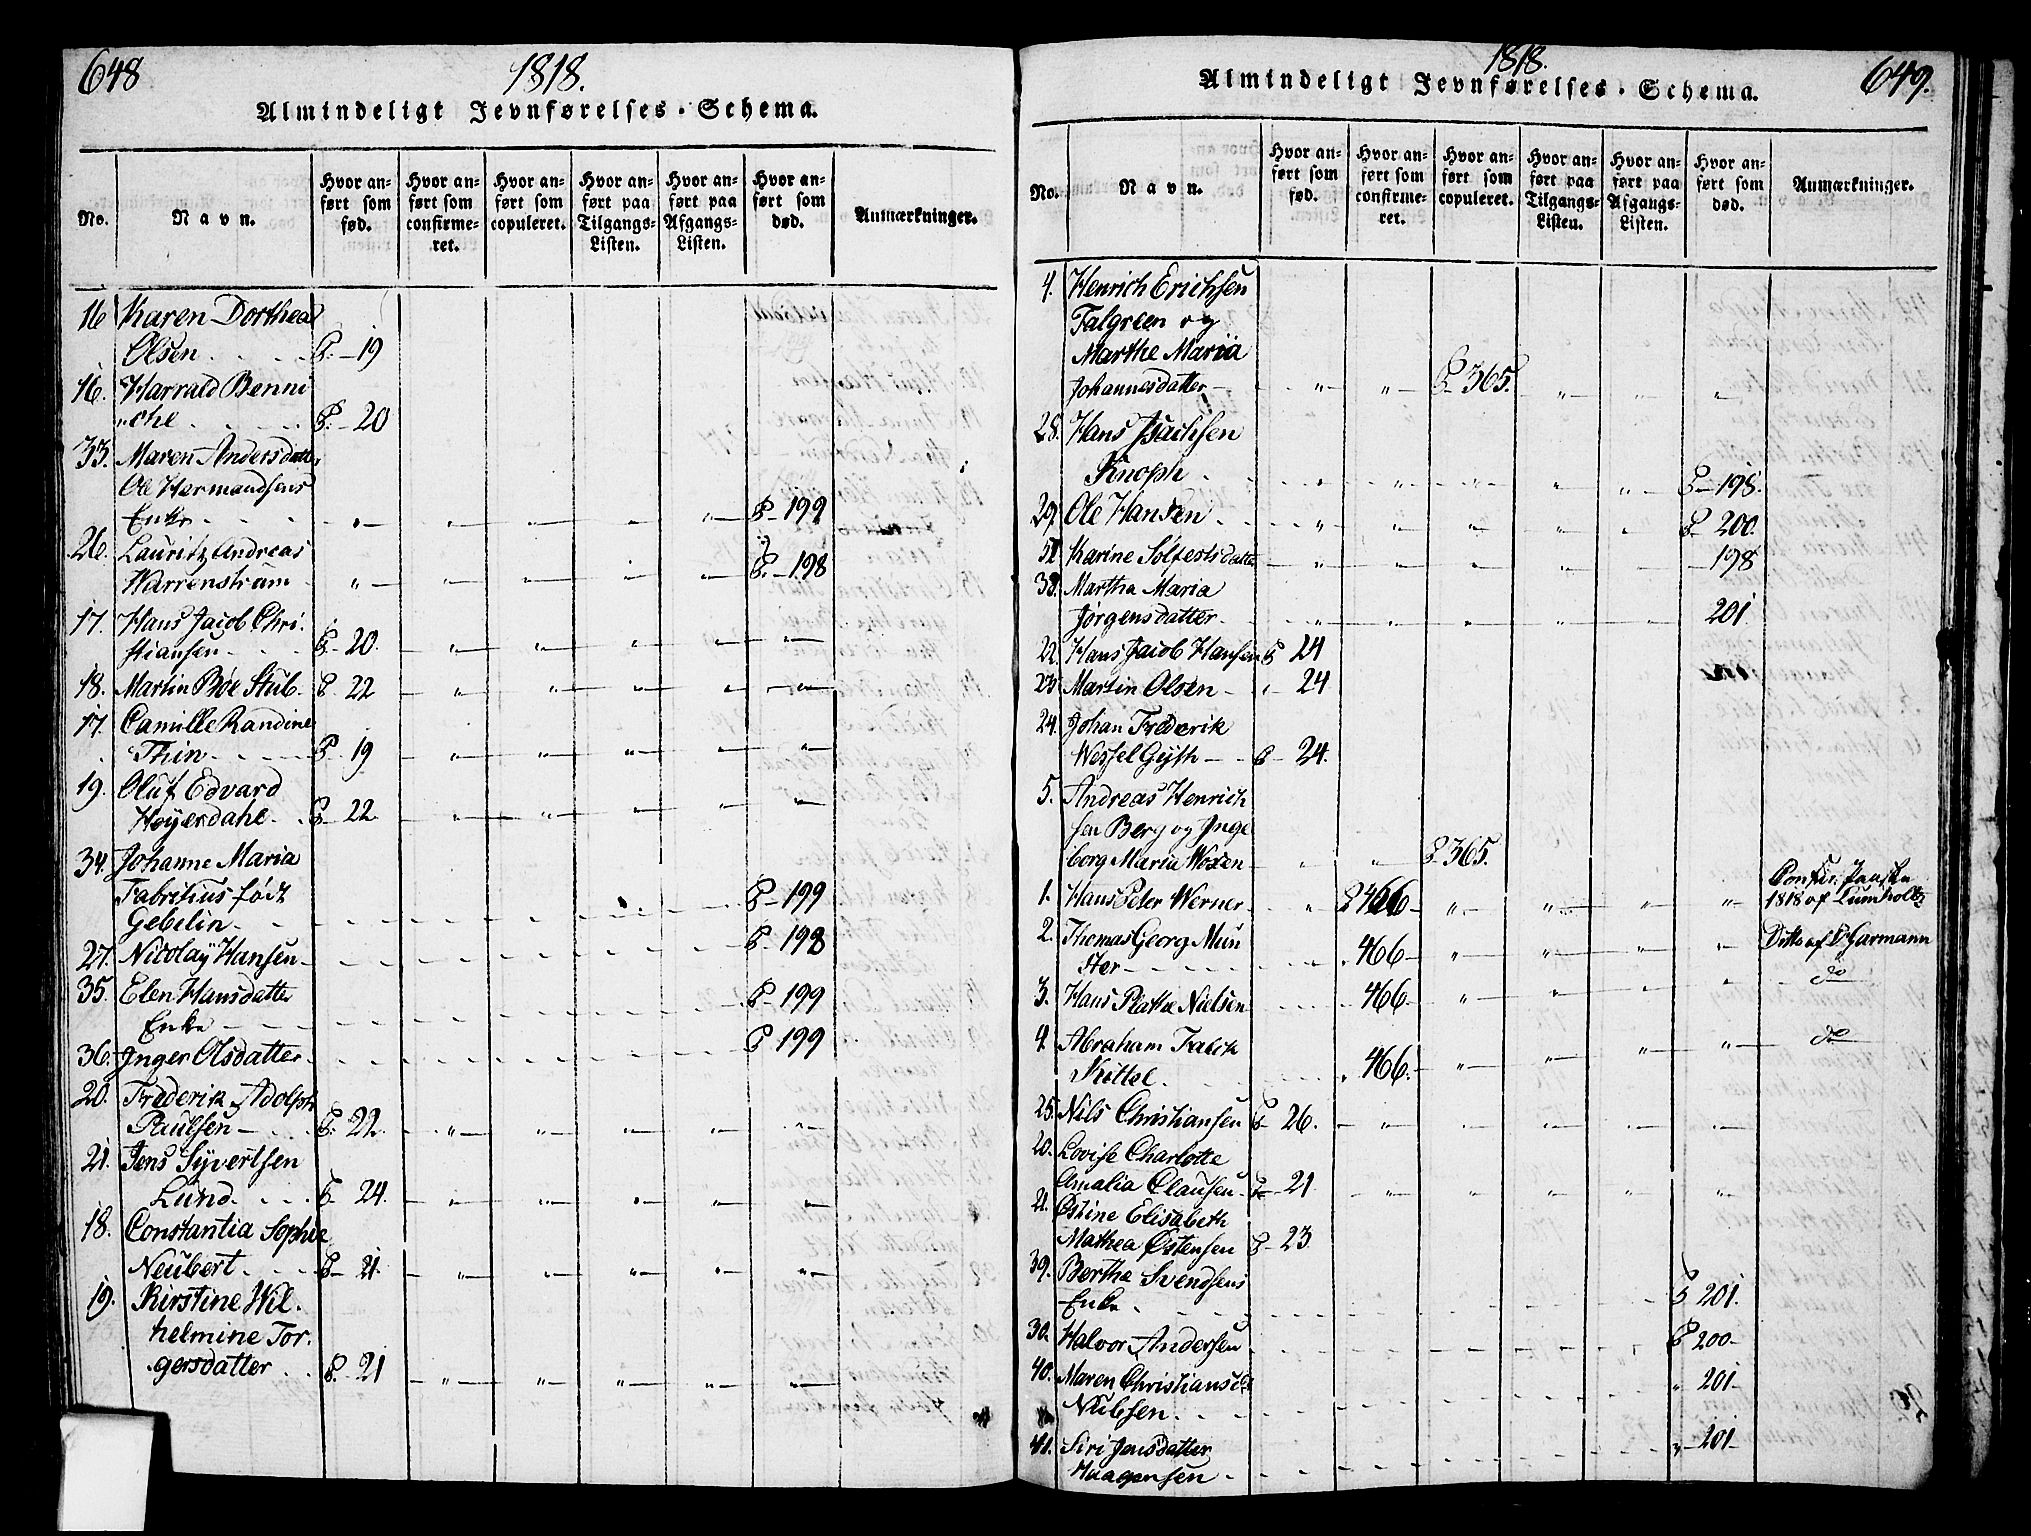 648
1818.
Almindeligt Jevnførelses-Schema.
No. Navn. Hvor anført som fød. Hvor anført som confirmeret. Hvor anført som copuleret. Hvor anført paa Tilgangs-Listen. Hvor anført paa Afgangs-Listen. Hvor anført som død. Anmærkninger.
16 Karen Dorthea
Olsen P. 19
16. Harrald Benni
che P. 20
33. Maren Andersdatter
Ole Hermandsens
Enke P. 199
26. Lauritz Andreas
Warrenstrøm P. 198
17. Hans Jacob Chri-
stiansen P. 20.
18. Martin Bøe Stub P. 22
17. Camille Randine
Thin P. 19
19. Oluf Edvard
Høyerdahl P. 22.
34. Johanne Maria
Fabritius født
Gebelin P. 199
27. Nicolay Hansen P. 198
35. Elen Hansdatter
Enke P. 199
36. Inger Olsdatter P 199
20. Frederik Adolph
Paulsen P. 22.
21. Jens Syvertsen
Lund P. 24.
18. Constantia Sophie
Neubert P. 21.
19. Kirstine Wil-
helmine Tor-
gersdatter P. 21
1818.
649.
Almindeligt Jevnførelses-Schema.
No. Navn. Hvor anført som fød. Hvor anført som confirmeret. Hvor anført som copuleret. Hvor anført paa Tilgangs-Listen. Hvor anført paa Afgangs-Listen. Hvor anført som død. Anmærkninger.
4. Henrich Erichsen
Talgreen og
Marthe Maria
Johannesdatter P. 365.
28. Hans Isachsen
Knoph P. 198.
29. Ole Hansen P. 200.
Karine Solfestsdatter 198
38. Martha Maria
Jørgensdatter 201
22. Hans Jacob Hansen P 24
23. Martin Olsen 24
24. Johan Frederik
Wessel Gyth P 24.
5. Andreas Henrich
sen Berg og Inge
borg Maria Woxen P. 365.
1. Hans Peter Werner P 466 Confir. Paaske
1818 af Lumholtz
2. Thomas Georg Mün
ster 466 Ditto af Garmann
3. Hans Plathe Nielsen 466 do
4. Abraham Falck
Kittel 466. do
25. Nils Christiansen P 26.
20. Lovise Charlotte
Amalia Clausen P 21
21. Østine Elisabeth
Mathea Østensen P 23
39. Berthe Svendsens
Enke P 201.
30. Halvor Andersen P 200
40. Maren Christiansdt
Nielsen 201
41. Siri Jensdatter
Haagensen 201